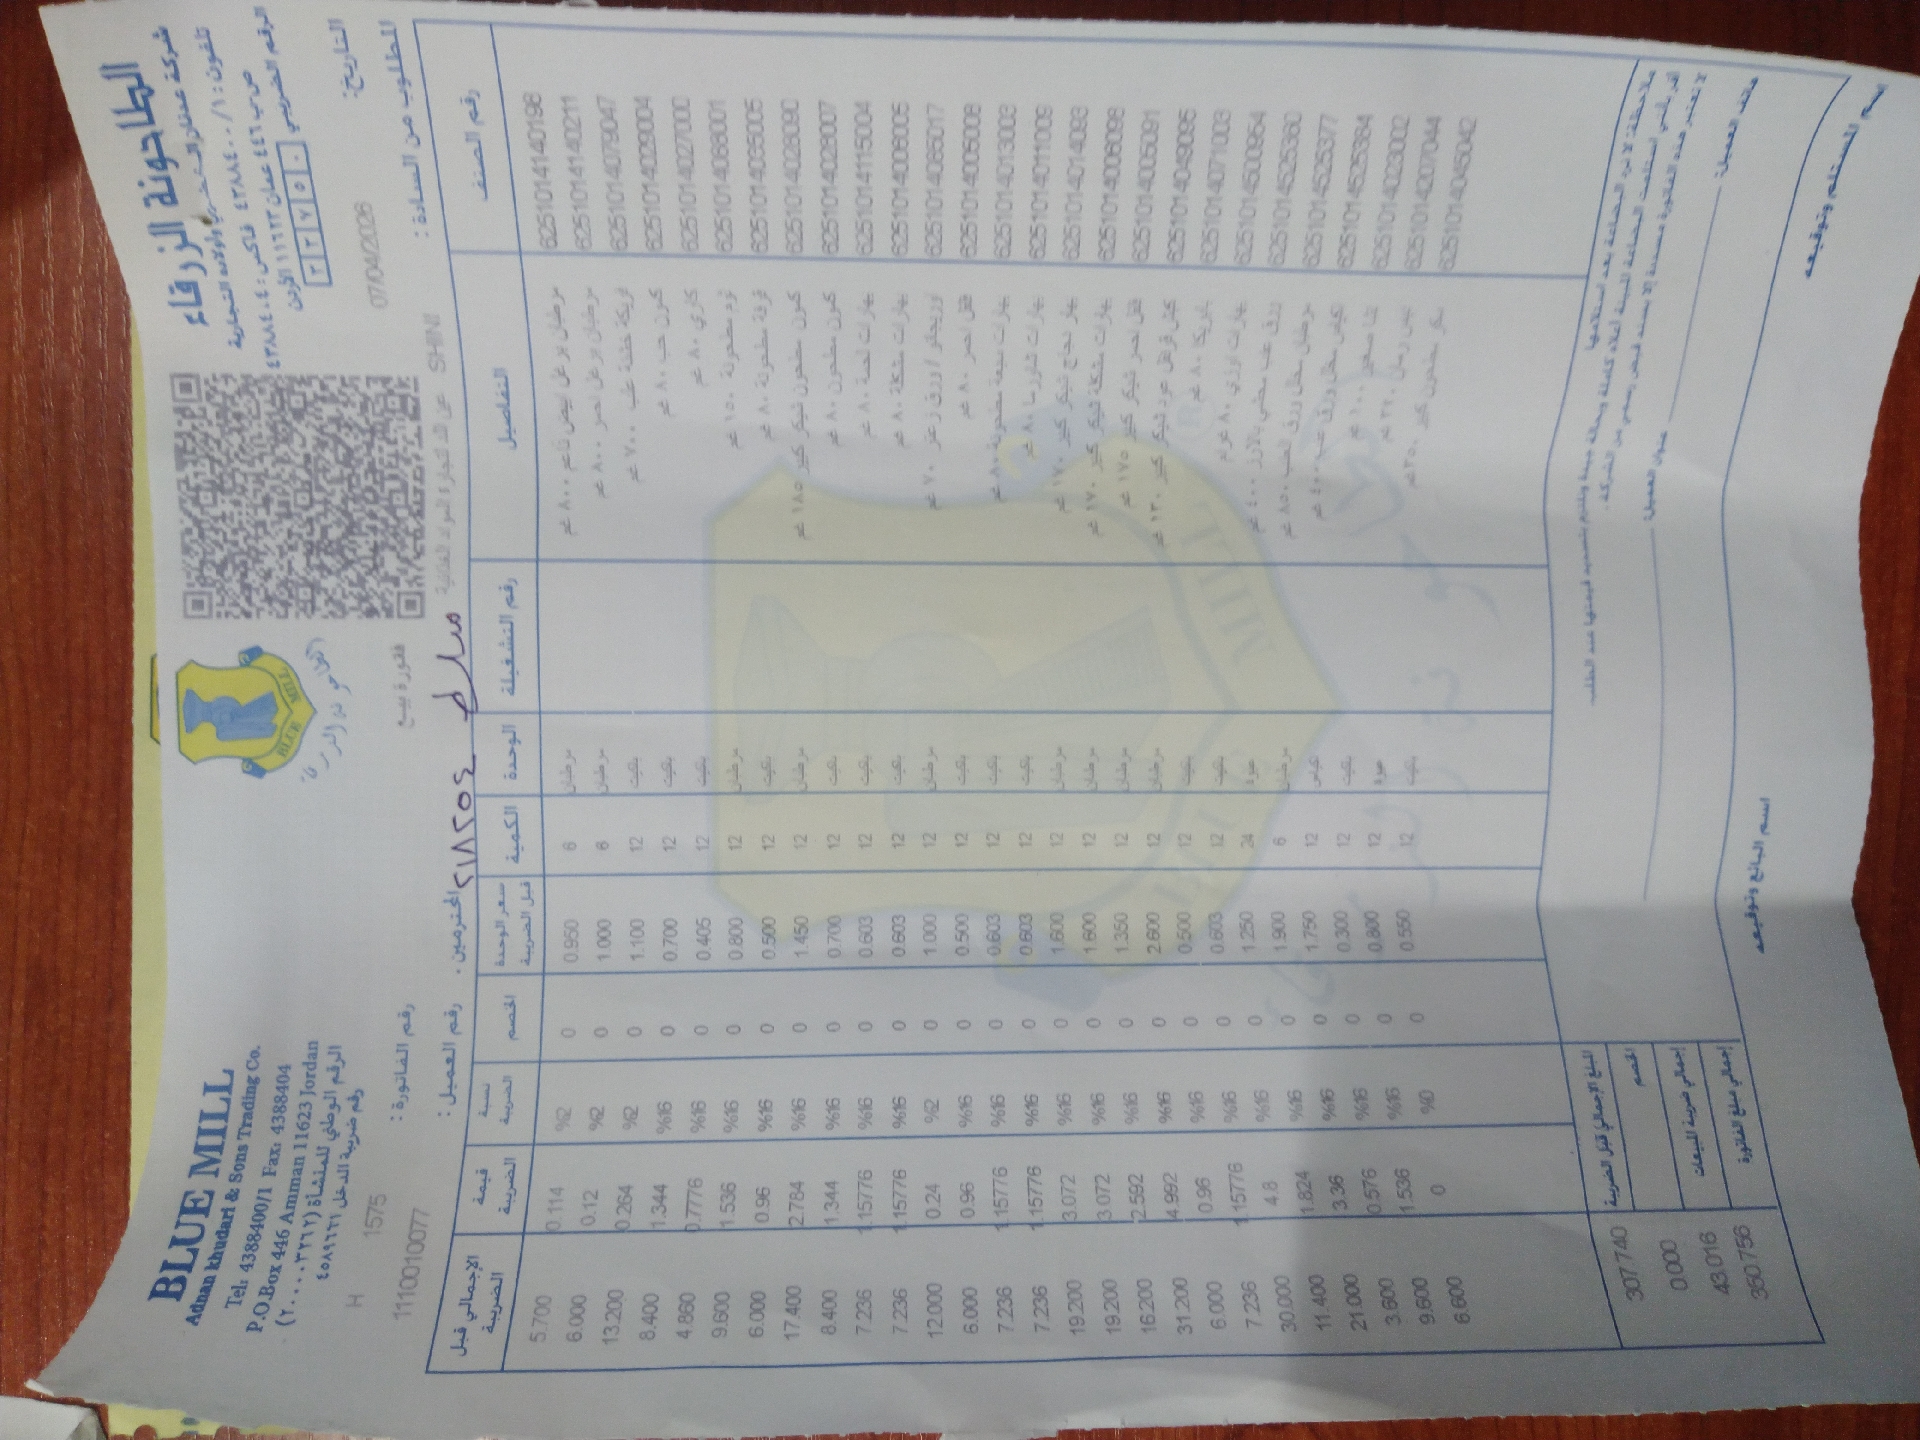 BLUE MILL
Adnan khudari & Sons Trading Co.
Tel: 4388400/1 Fax: 4388404
P.O.Box 446 Amman 11623 Jordan
الرقم الوطني للمنشأة (٢٠٠٠٠٣٢٦٦)
رقم ضريبة الدخل ٤٥٨٩٦٦١
BLUE MILL
الطاحونة الزرقاء
شركة عدنان الخضري وأولاده التجارية
تلفون: ٤٣٨٨٤٠٠/١ فاكس: ٤٣٨٨٤٠٤
ص.ب ٤٤٦ عمان ١١٦٢٣ الأردن
الرقم الضريبي
H 1575 رقم الفاتورة:
فاتورة بيع
التاريخ: 07/04/2026
1110010077 رقم العميل:
المطلوب من السادة: SHINI
المحترمين.
٢١٨٢٥٤
رقم الصنف التفاصيل رقم التشغيلة الوحدة الكمية سعر الوحدة قبل الضريبة الخصم نسبة الضريبة قيمة الضريبة الإجمالي قبل الضريبة
6251014140198 مرطبان برغل ابيض ناعم ٨٠٠ غم مرطبان 6 0.950 0 %2 0.114 5.700
6251014140211 مرطبان برغل اسمر ٨٠٠ غم مرطبان 6 1.000 0 %2 0.12 6.000
6251014079047 فريكة خشنة علب ٧٠٠ غم بكيت 12 1.100 0 %2 0.264 13.200
6251014029004 كمون حب ٨٠ غم بكيت 12 0.700 0 %16 1.344 8.400
6251014027000 كاري ٨٠ غم بكيت 12 0.405 0 %16 0.7776 4.860
6251014068001 ثوم مطحونة ١٥٠ غم مرطبان 12 0.800 0 %16 1.536 9.600
6251014035005 قرفة مطحونة ٨٠ غم بكيت 12 0.500 0 %16 0.96 6.000
6251014028090 كمون مطحون شيكر كبير ١٨٥ غم مرطبان 12 1.450 0 %16 2.784 17.400
6251014028007 كمون مطحون ٨٠ غم بكيت 12 0.700 0 %16 1.344 8.400
6251014115004 بهارات لحمة ٨٠ غم بكيت 12 0.603 0 %16 1.15776 7.236
6251014006005 بهارات مشكلة ٨٠ غم بكيت 12 0.603 0 %16 1.15776 7.236
6251014065017 اوريجانو / اوراق زعتر ٧٠ غم مرطبان 12 1.000 0 %2 0.24 12.000
6251014005008 فلفل احمر ٨٠ غم بكيت 12 0.500 0 %16 0.96 6.000
6251014013003 بهارات سبعة مطحونة ٨٠ غم بكيت 12 0.603 0 %16 1.15776 7.236
6251014011009 بهارات شاورما ٨٠ غم بكيت 12 0.603 0 %16 1.15776 7.236
6251014014093 بهار دجاج شيكر كبير ١٧٠ غم مرطبان 12 1.600 0 %16 3.072 19.200
6251014006098 بهارات مشكلة شيكر كبير ١٧٠ غم مرطبان 12 1.600 0 %16 3.072 19.200
6251014005091 فلفل احمر شيكر كبير ١٧٥ غم مرطبان 12 1.350 0 %16 2.592 16.200
6251014049095 كبش قرنفل عود شيكر كبير ١٣٠ غم مرطبان 12 2.600 0 %16 4.992 31.200
6251014071003 بابريكا ٨٠ غم بكيت 12 0.500 0 %16 0.96 6.000
بهارات اوزي ٨٠ غرام بكيت 12 0.603 0 %16 1.15776 7.236
6251014500954 ورق عنب محشي بالارز ٤٠٠ غم عبوة 24 1.250 0 %16 4.8 30.000
6251014525360 مرطبان مخلل ورق العنب ٨٥٠ غم مرطبان 6 1.900 0 %16 1.824 11.400
6251014525377 12 1.750 0 %16 3.36 21.000
6251014525384 ١٠٠ غم بكيت 12 0.300 0 %16 0.576 3.600
6251014023002 دبس رمان عبوة 12 0.800 0 %16 1.536 9.600
6251014207044 سكر مطحون كبير ٢٥٠ غم بكيت 12 0.550 0 %0 0 6.600
6251014045042
المبلغ الإجمالي قبل الضريبة 307.740
الخصم 0.000
إجمالي ضريبة المبيعات 43.016
إجمالي مبلغ الفاتورة 360.756
عنوان العميل:
هاتف العميل:
اسم البائع وتوقيعه
اسم المستلم وتوقيعه